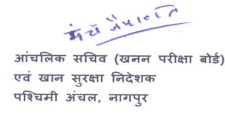 आंचलिक सचिव (खनन परीक्षा बोर्ड)
एवं खान सुरक्षा निदेशक
पश्चिमी अंचल, नागपुर